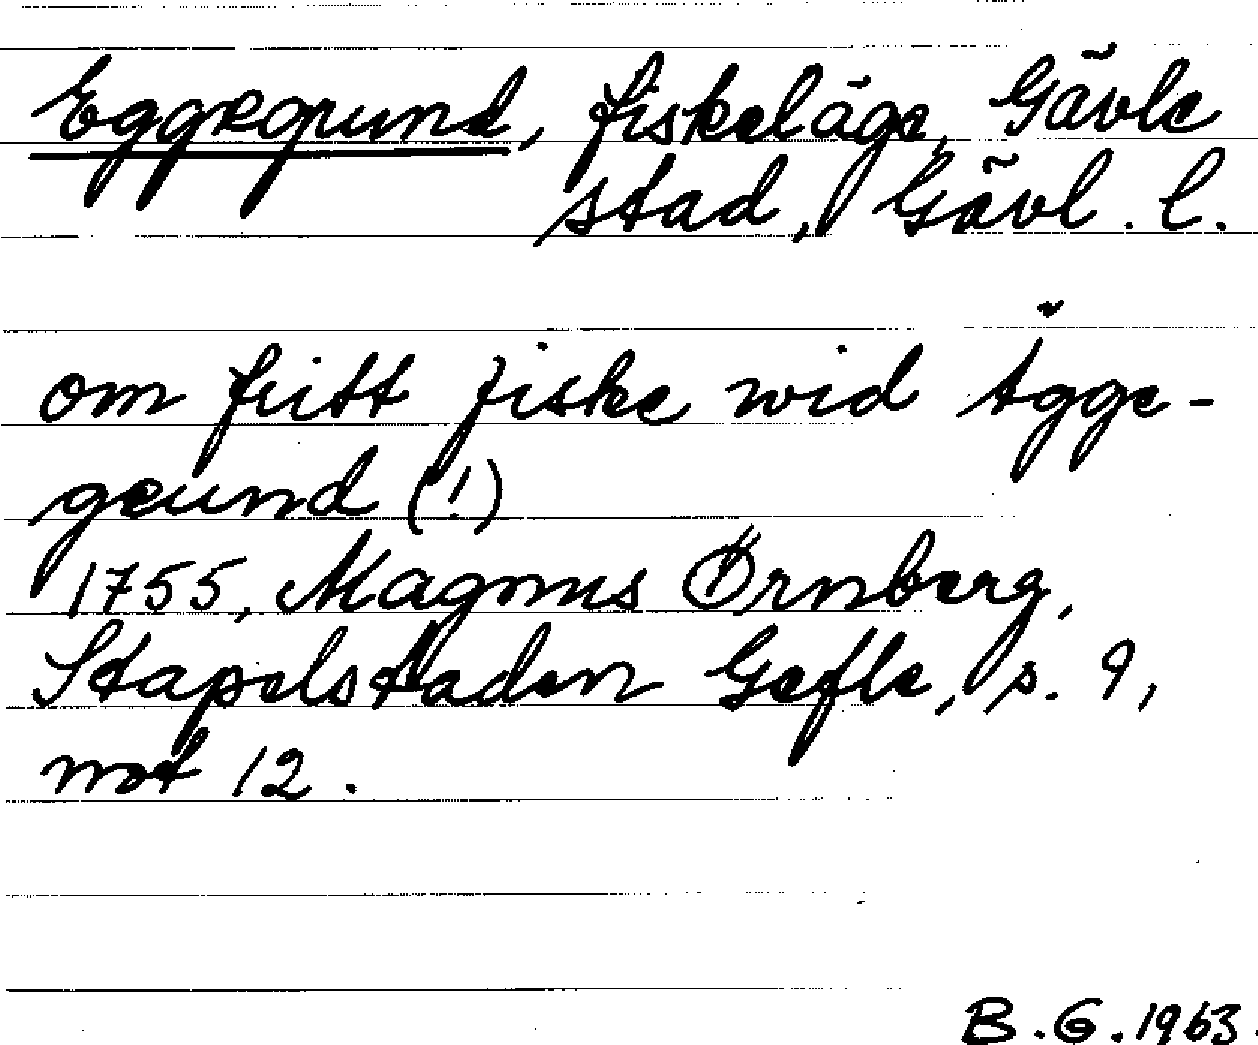 Eggegrund, fiskeläge, Gävle
stad, Gävl. l.
om fritt fiske wid Ägge-
grund (!)
1755, Magnus Örnberg,
Stapelstaden Gefle, s. 9,
not 12.
B.G. 1963.